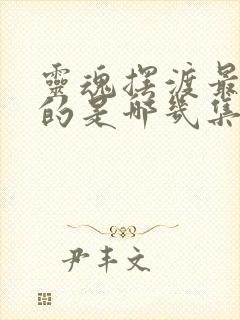 靈魂摆渡最
的是哪幾集
尹丰文